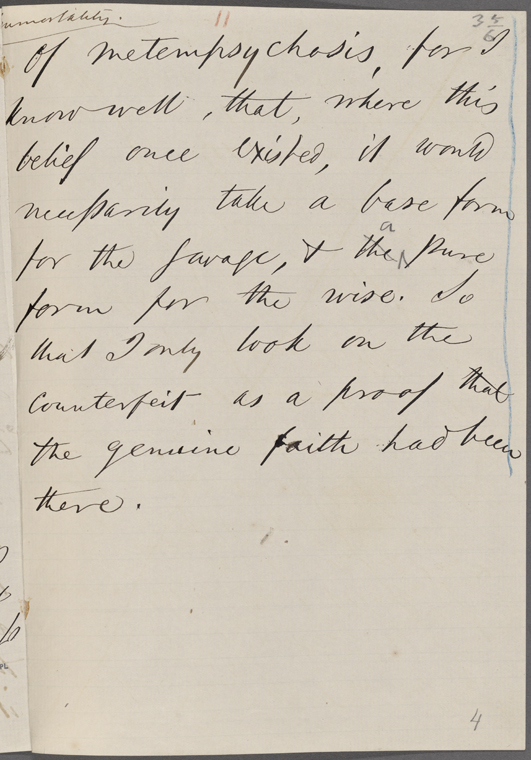 immortality.
11
3 5/6
of metempsychosis, for I
know well, that, where this
belief once existed, it would
necessarily take a base form
for the savage, & the a pure
form for the wise. So
that I only look on the
counterfeit as a proof that
the genuine faith had been
there.
4